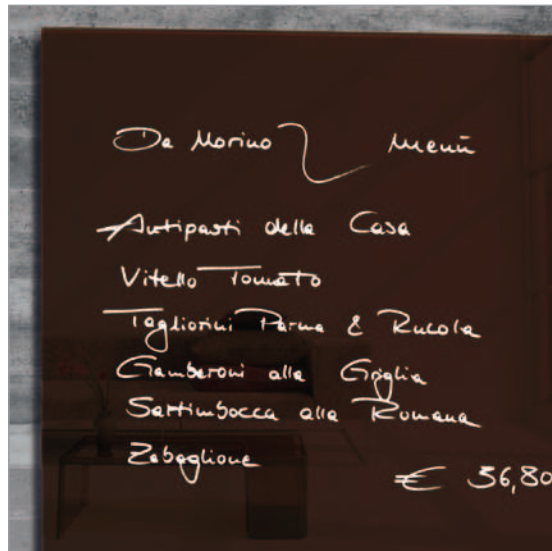 Da Morino Menü
Antipasti della Casa
Vitello Tomato
Tagliorini Parma & Rucola
Gamberoni alla Griglia
Sartimbocca alla Romana
Zabaglione
€ 36,80